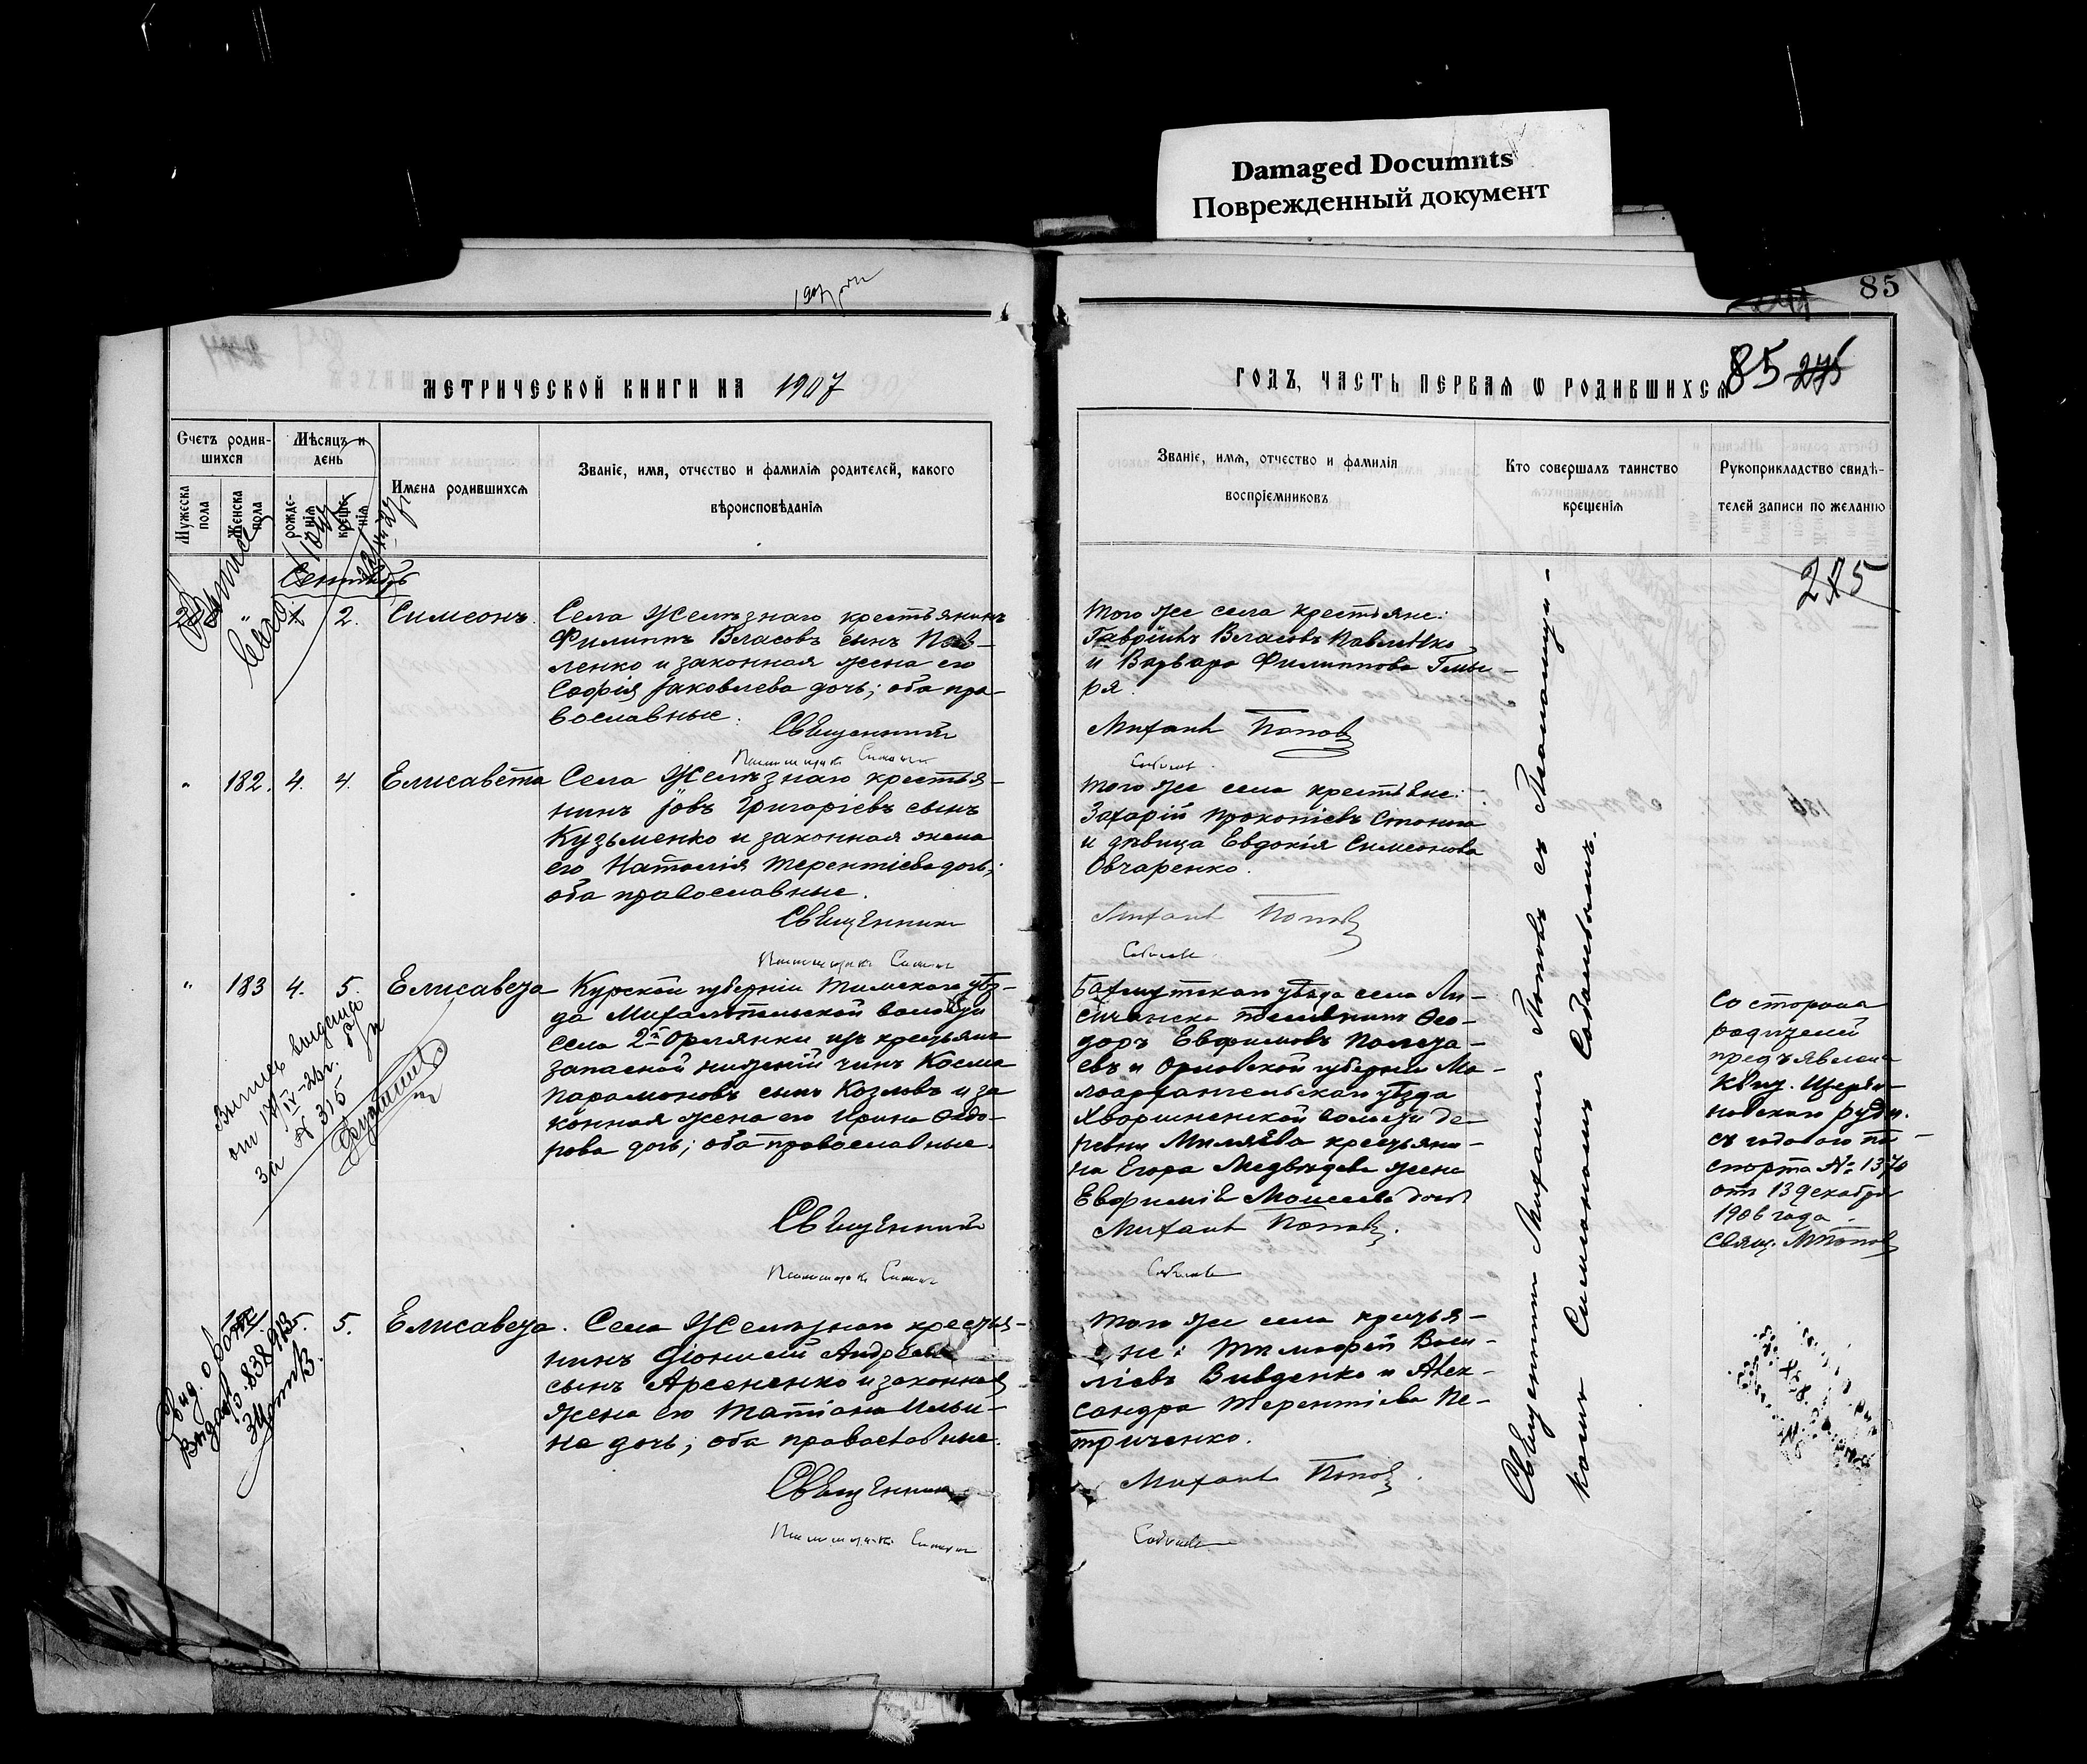 Damaged Documnts
Поврежденный документ
85
85 275
МЕТРИЧЕСКОЙ КНИГИ НА 1907
ГОДЪ, ЧАСТЬ ПЕРВАЯ Ѡ РОДИВШИХСЯ
Счетъ родив-
шихся
Мужеска пола
Женска пола
Мѣсяцъ и
день
рожде-
нія
креще-
нія
Имена родившихся
Званіе, имя, отчество и фамилія родителей, какого
вѣроисповѣданія
Званіе, имя, отчество и фамилія
воспріемниковъ
Кто совершалъ таинство
крещенія
Рукоприкладство свидѣ-
телей записи по желанію
285
Сентябрь
" 2. Симеонъ.
Села Желѣзнаго крестьянинъ
Филиппъ Власовъ сынъ Пав-
ленко и законная жена его
Софія Іаковлева дочь; оба пра-
вославные.
Священникъ
Того же села крестьяне:
Гавріилъ Власовъ Павленко
и Варвара Филиппова Гмы-
ря.
Михаилъ Поповъ
" 182. 4. 4. Елисавета
Села Желѣзнаго крестья-
нинъ Іовъ Григоріевъ сынъ
Кузьменко и законная жена
его Наталія Терентіева дочь;
оба православные.
Священникъ
Того же села крестьяне:
Захарій Прокопіевъ
и дѣвица Евдокія Симеонова
Овчаренко.
Михаилъ Поповъ
" 183 4. 5. Елисавета
Курской губерніи Тимскаго уѣз-
да волости
села 2й Орлянки изъ крестьянъ
запасной нижній чинъ Косма
Парамоновъ сынъ Козловъ и за
конная жена его Ирина Ѳедо-
рова дочь; оба православные.
Священникъ
Бахмутскаго уѣзда села Ли-
сичанска Ѳео-
доръ Евфимовъ
евъ и Орловской губерніи Ма-
лоархангельскаго уѣзда
волости де-
ревни Миляева крестьяни-
на Егора Медвѣдева жена
Евфимія Моисеева дочь
Михаилъ Поповъ.
Со стороны
родителей
предъявлена
Щерби-
новскаго рудн.
съ годового па-
спорта № 1370
отъ 13 декабря
1906 года.
Свящ. М Поповъ
Выпись выдана
за № 315
5. Елисавета.
Села Желѣзнаго крестья-
нинъ Діонисій Андреевъ
сынъ Арсененко и законная
жена его Татіана Ильи-
на дочь; оба православные.
Священникъ
Того же села крестья-
не: Тимофей Васи-
ліевъ Вивденко и Алек-
сандра Терентіева Пе-
триченко.
Михаилъ Поповъ.
Священникъ Михаилъ Поповъ съ Псаломщи-
комъ Симеономъ